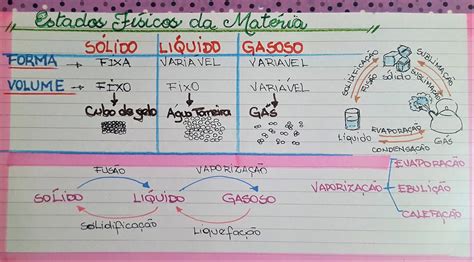 Estados Físicos da Matéria
SÓLIDO LÍQUIDO GASOSO
FORMA → FIXA VARIAVEL VARIAVEL
VOLUME → FIXO FIXO VARIAVEL
Cubo de gelo Água Torneira GÁS
SOLIDIFICAÇÃO
FUSÃO
SUBLIMAÇÃO
SUBLIMAÇÃO
sólido
Líquido
GÁS
EVAPORAÇÃO
CONDENSAÇÃO
FUSÃO VAPORIZAÇÃO
SÓLIDO LÍQUIDO GASOSO
Solidificação Liquefação
VAPORIZAÇÃO
EVAPORAÇÃO
EBULIÇÃO
CALEFAÇÃO